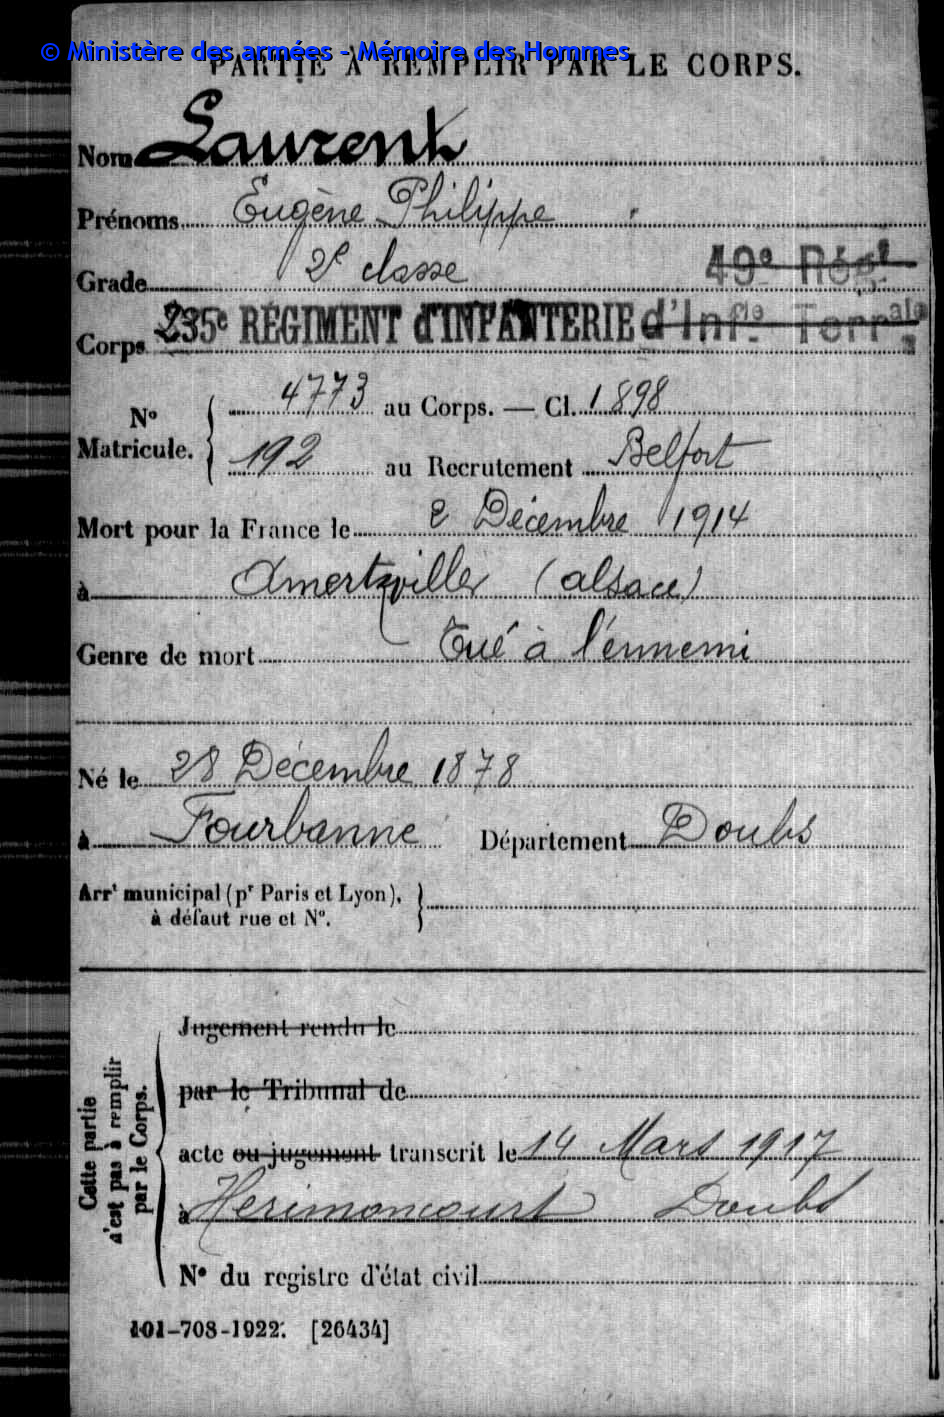 © Ministère des armées - Mémoire des Hommes
PARTIE À REMPLIR PAR LE CORPS.
Nom Laurent
Prénoms Eugène Philippe
Grade 2e classe 49e Régt
Corps 235e RÉGIMENT d'INFANTERIE d'Infie Terrale
4773 au Corps. — Cl. 1898
No
Matricule.
192 au Recrutement Belfort
Mort pour la France le 2 Décembre 1914
à Amertzviller (alsace)
Genre de mort Tué à l'ennemi
Né le 28 Décembre 1878
à Fourbanne Département Doubs
Arrt municipal (pr Paris et Lyon),
à défaut rue et No.
Jugement rendu le
par le Tribunal de
acte ou jugement transcrit le 14 Mars 1917
à Herimoncourt Doubs
No du registre d'état civil
Cette partie
n'est pas à remplir
par le Corps.
101-708-1922. [26434]